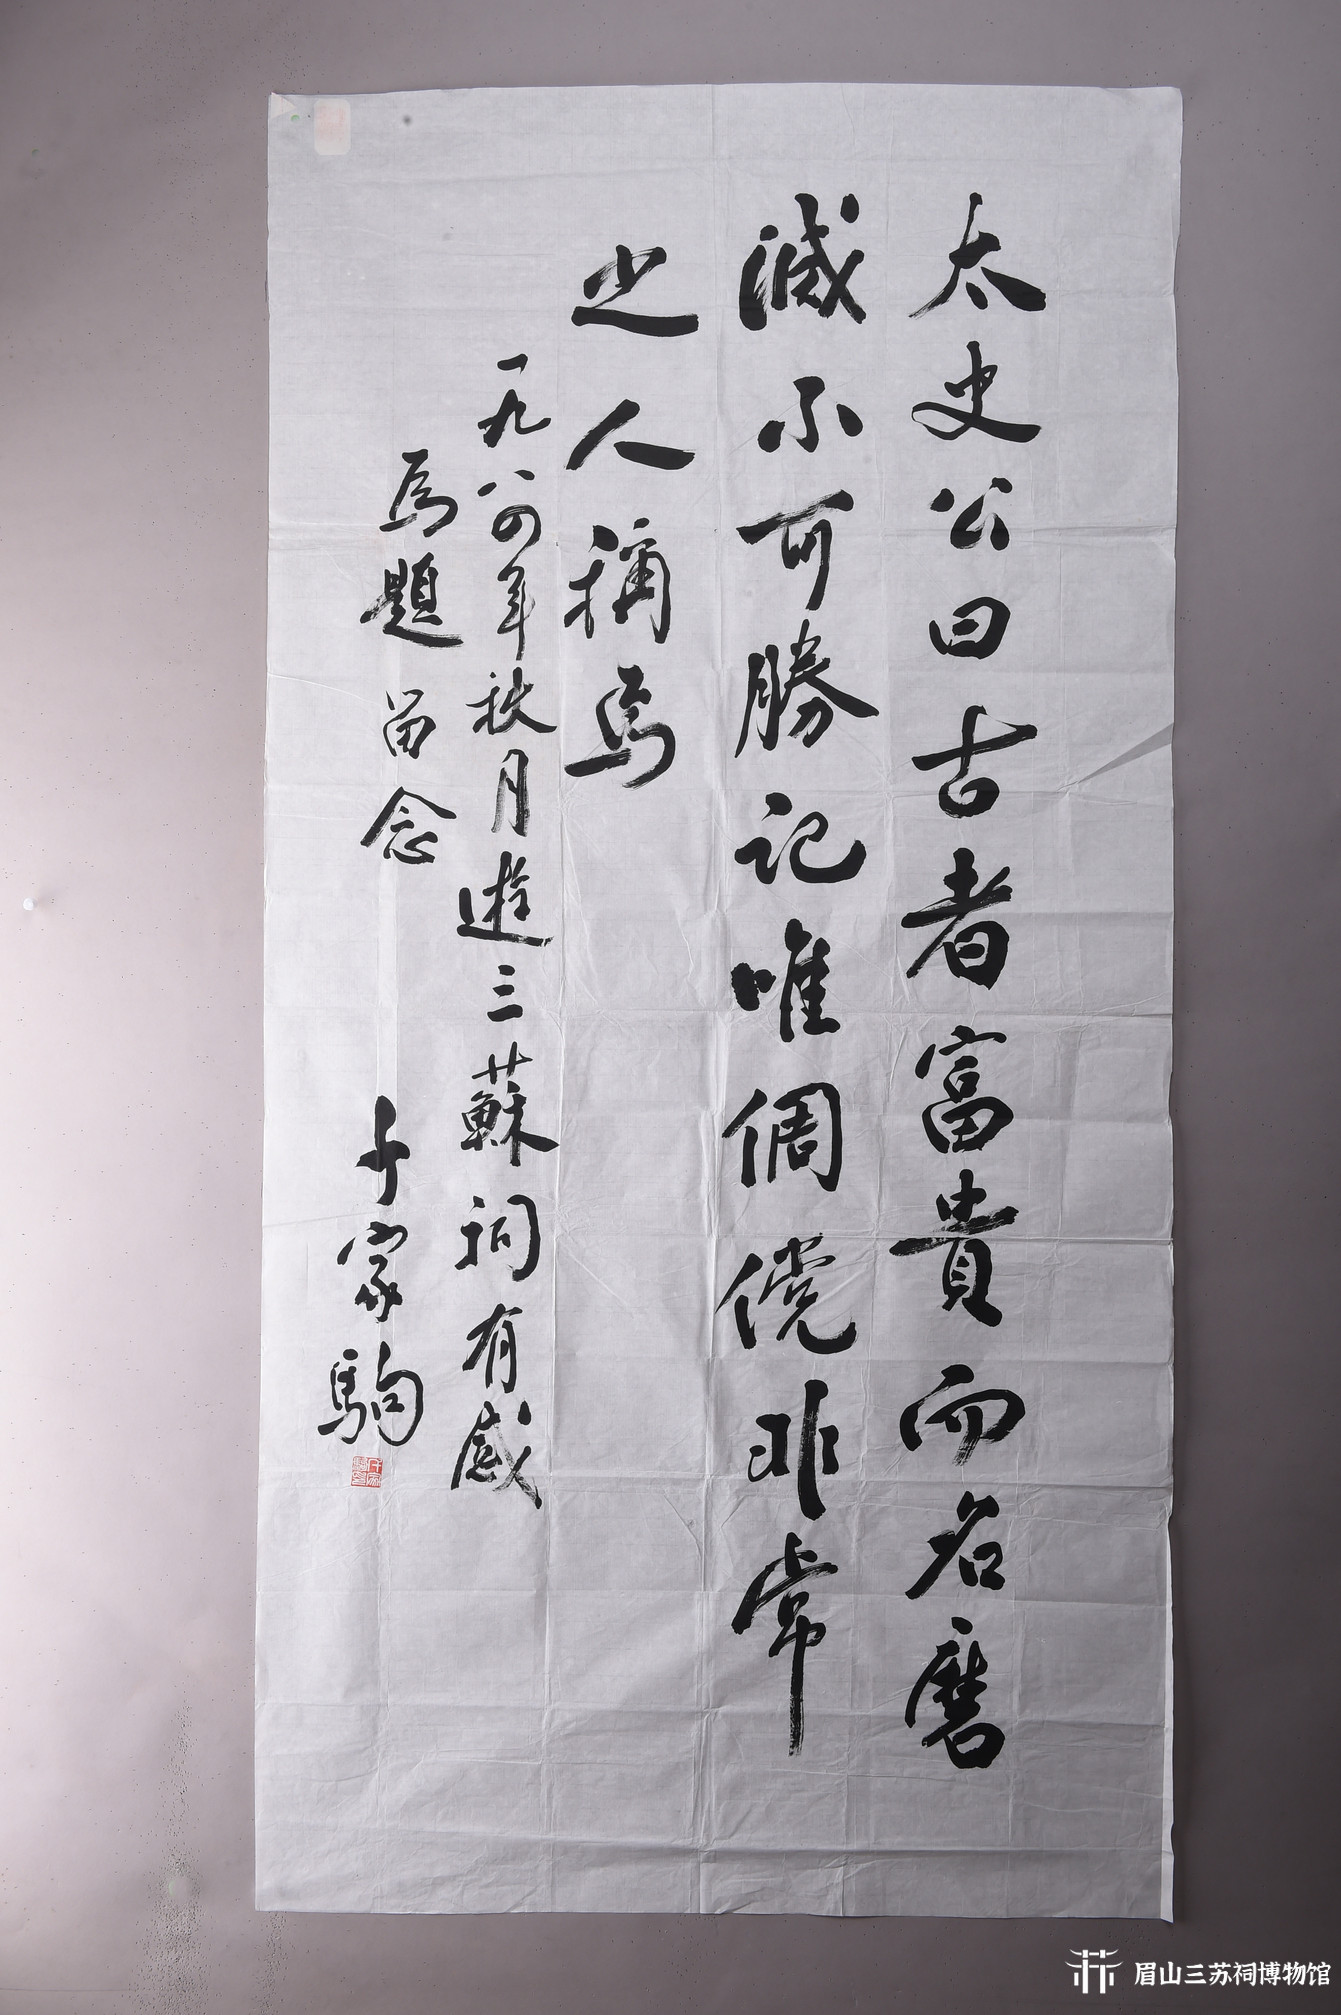 太史公曰古者富貴而名磨
滅不可勝記唯倜儻非常
之人稱焉
一九八四年秋月遊三蘇祠有感
為題留念
千家駒
眉山三苏祠博物馆